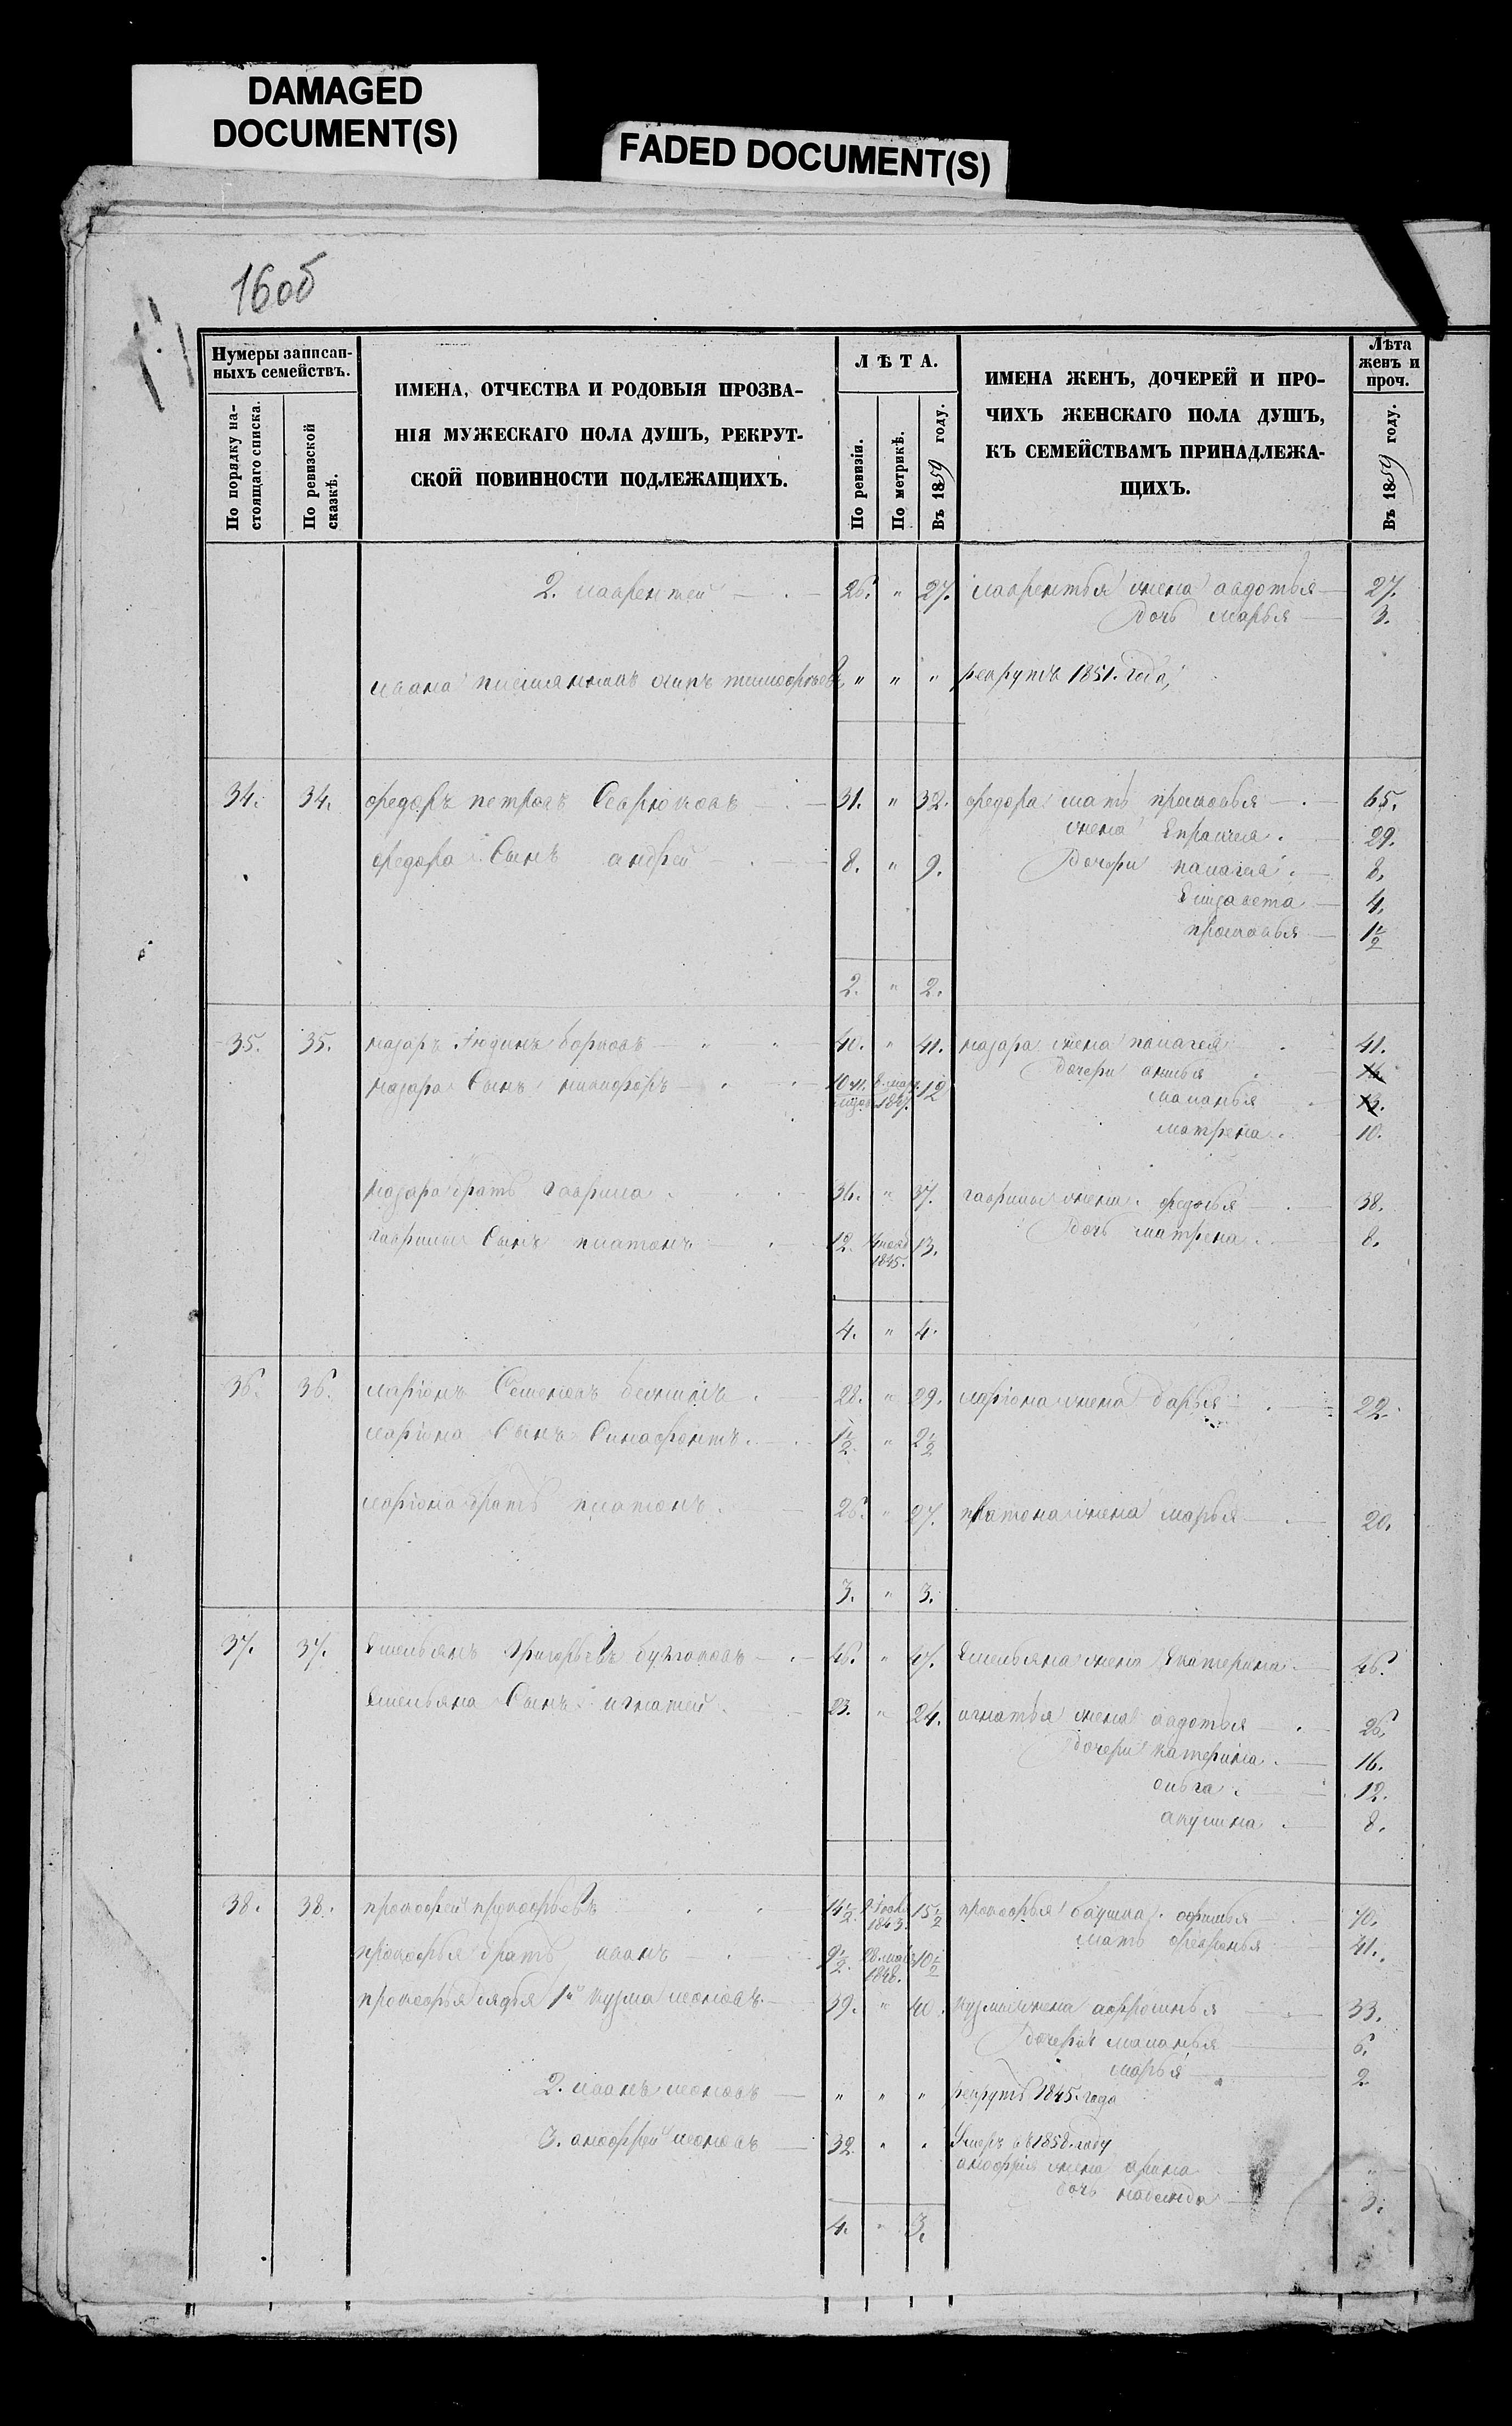 DAMAGED
DOCUMENT(S)
FADED DOCUMENT(S)
16об
Нумеры записан-
ныхъ семействъ.
По порядку на-
стоящаго списка.
По ревизской
сказкѣ.
ИМЕНА, ОТЧЕСТВА И РОДОВЫЯ ПРОЗВА-
НІЯ МУЖЕСКАГО ПОЛА ДУШЪ, РЕКРУТ-
СКОЙ ПОВИННОСТИ ПОДЛЕЖАЩИХЪ.
ЛѢТА.
По ревизіи.
По метрикѣ.
Въ 1859 году.
ИМЕНА ЖЕНЪ, ДОЧЕРЕЙ И ПРО-
ЧИХЪ ЖЕНСКАГО ПОЛА ДУШЪ,
КЪ СЕМЕЙСТВАМЪ ПРИНАДЛЕЖА-
ЩИХЪ.
Лѣта
женъ и
проч.
Въ 1859 году.
2. лаврентей 26. " 27. лаврентья жена авдотья 27.
дочь марья 3.
ивана племянникъ осипъ тимофѣевъ " " " рекрутъ 1851. года
34. 34. федоръ петровъ 31. " 32. федора мать прасковья 65.
жена 29.
федора Сынъ андрей 8. " 9. Дочери палагея 8.
Елизавета 4.
прасковья 1½
2. " 2.
35. 35. назаръ юдинъ борковъ 40. " 41. назара жена палагея 41.
дочери анисья
назара Сынъ никифоръ 1847. 12
маланья 13.
матрена 10.
назара братъ гаврила 36. " 37. гаврилы жена федосья 38.
гаврилы Сынъ платонъ 12. 1845. 13. Дочь матрена 8.
4. " 4.
36. 36. ларіонъ Семеновъ 28. " 29. ларіона жена дарья 22.
ларіона Сынъ 1½ " 2½
ларіона братъ платонъ 26. " 27. платона жена марья 20.
3. " 3.
37. 37. Емельянъ григорьевъ 46. " 47. Емельяна жена Екатерина 46.
Емельяна Сынъ игнатей 23. " 24. игнатья жена авдотья 26.
дочери катерина 16.
ольга 12.
акулина 8.
38. 38. прокофей прокофьевъ 14½ 1843. 15½ прокофья бабушка афимья 70.
мать 41.
прокофья братъ иванъ 9½ 1848. 10½
прокофья дядья 1й кузма леоновъ 39. " 40. кузмы жена 33.
дочери маланья 6.
марья 2
2. иванъ леоновъ " " " рекрутъ 1845. года
3. анофрей леоновъ 32. " " Умеръ въ 1858. году
анофрія жена арина "
дочь надежда 3.
4. " 3.